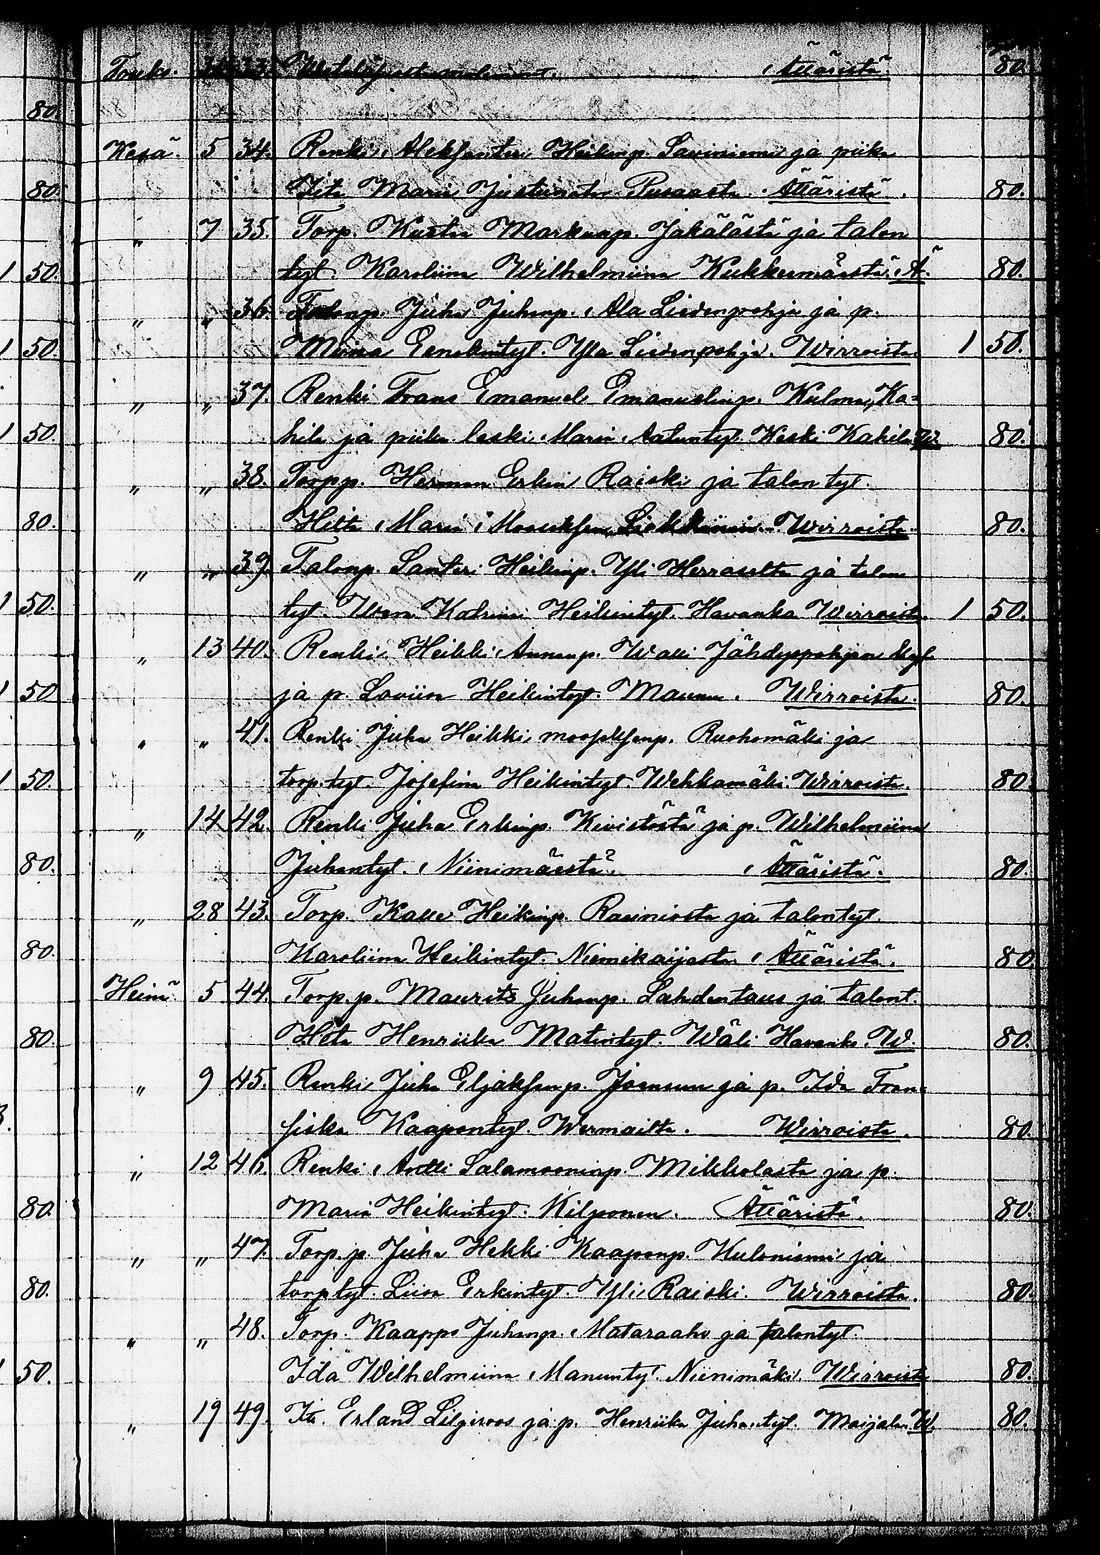 Touko. 31 33. Ätäristä 80.
80.
Kesä. 5 34. Renki Aleksanteri Heikinp. Saviniemi ja piika
80. Maria Ätäristä. 80.
" 7 35. Torp. Kustaa Markunp. Jakälästä ja talon
1 50. tyt. Karoliina Wilhelmiina Kukkurmäestä. Ä. 80.
" " 36. Talonp. Juha Juhanp. Ala Liedenpohja ja p.
1 50. Miina Eenokintyt. Yla Liedenpohja. Wirroista 1 50.
" " 37. Renki Frans Emanuel Emanuelinp. Kulma Ka=
1 50. hila ja piika leski Maria Aatuntyt. Keski Kahila W. 80.
" " 38. Torpp. Herman Erkin Raiski ja talon tyt.
80. Heta Maria Wirroista. 80.
" " 39. Talonp. Santeri Heikinp. Yli Herraselta ja talon
1 50. tyt. Katriina Heikintyt. Havanka Wirroista. 1 50.
" 13 40. Renki Heikki Annanp. Jähdyspohjan
1 50. ja p. Loviisa Heikintyt. Wirroista. 80.
" " 41. Renki Juha Heikki Ruohomäki ja
1 50. torp. tyt. Josefiina Heikintyt. Wehkamäki. Wirroista. 80.
" 14 42. Renki Juha Erkinp. Kivistöstä ja p. Wilhelmiina
80. Juhantyt. Niinimäestä. Ätäristä. 80.
" 28 43. Torp. Kalle Heikinp. Rauniosta ja talontyt.
80. Karoliina Heikintyt. Ätäristä. 80
Heinä. 5 44. Torp. p. Maurits Juhanp. Lahdentaus ja talont.
80. Heta Henriika Matintyt. Wäli Havanka W. 80.
" 9 45. Renki Juha Joensuu ja p. Ida Fran=
siska Kaapontyt. Wermailta. Wirroista. 80.
" 12 46. Renki Antti Salamoninp. Mikkolasta ja p.
80. Maria Heikintyt. Kilponen. Ätäristä. 80.
" " 47. Torp. p. Juha Heikki Kaaponp. Kuloniemi ja
80. torptyt. Liisa Erkintyt. Yli Raiski. Wirroista. 80.
" " 48. Torp. Kaappo Juhanp. Mataraaho ja talontyt.
1 50. Ida Wilhelmiina Manuntyt. Niinimäki Wirroista 80.
" 19 49. Itt. Erland Liljeroos ja p. Henriika Juhantyt. Maijala W. 80.